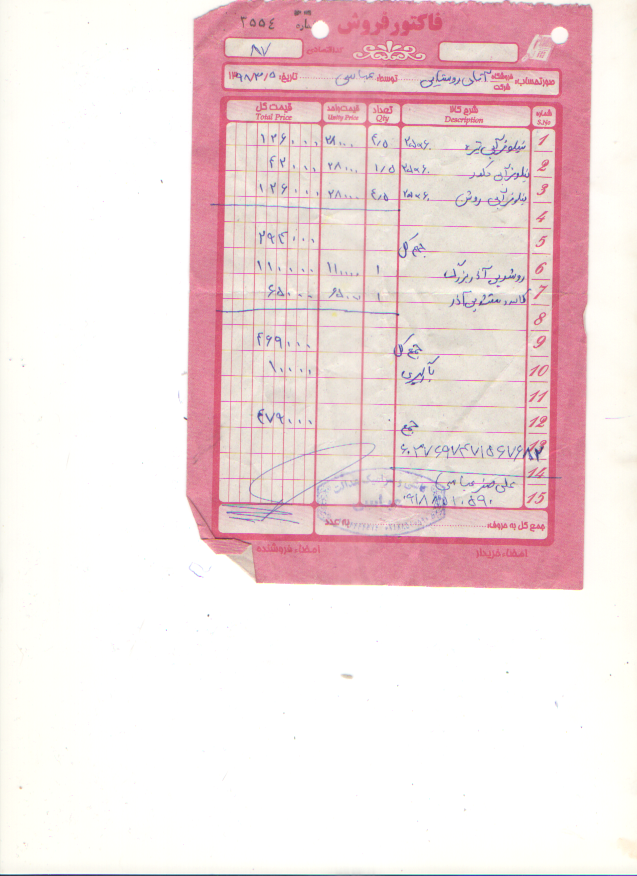 فاکتور فروش
شماره ۲۵۵٤
کد اقتصادی ۸۷
صورتحساب: فروشگاه شرکت آقای روستایی توسط: عباسی تاریخ: ۱۳۹۸/۳/۵
شماره S.No شرح کالا Description تعداد Qty قیمت واحد Unity Price قیمت کل Total Price
1 نیلوفر آبی تیره ۲۵×۶۰ ۴/۵ ۲۸۰۰۰ ۱۲۶۰۰۰
2 نیلوفر آبی ۲۵×۶۰ ۱/۵ ۲۸۰۰۰ ۴۲۰۰۰
3 نیلوفر آبی روشن ۲۵×۶۰ ۴/۵ ۲۸۰۰۰ ۱۲۶۰۰۰
4
5 جمع کل ۲۹۴۰۰۰
6 روشویی بزرگ ۱ ۱۱۰۰۰۰ ۱۱۰۰۰۰
7 ۱ ۶۵۰۰۰ ۶۵۰۰۰
8
9 جمع کل ۴۶۹۰۰۰
10 باربری ۱۰۰۰۰
11
12 جمع ۴۷۹۰۰۰
13
14 علی عباسی
15
جمع کل به حروف: به عدد
امضاء خریدار امضاء فروشنده